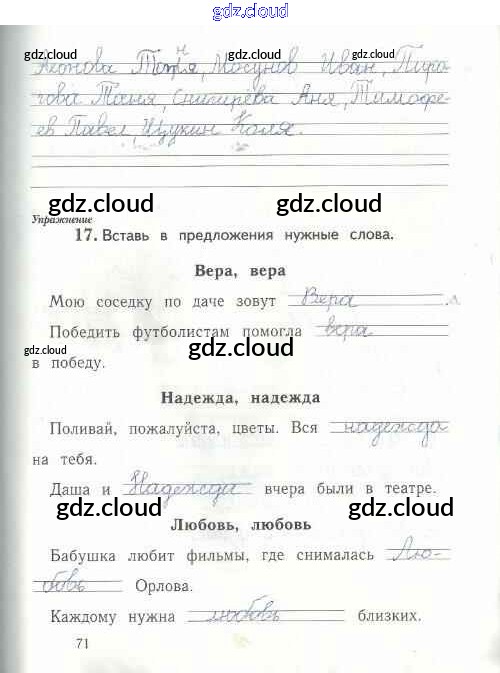 gdz.cloud
gdz.cloud gdz.cloud
Аконова Тоня, Мосунов Иван, Пиро-
гова Таня, Снигирёва Аня, Тимофе-
ев Павел, Щукин Коля.
gdz.cloud gdz.cloud
Упражнение
17. Вставь в предложения нужные слова.
Вера, вера
Мою соседку по даче зовут Вера.
Победить футболистам помогла вера
gdz.cloud gdz.cloud
в победу.
Надежда, надежда
Поливай, пожалуйста, цветы. Вся надежда
на тебя.
Даша и Надежда вчера были в театре.
gdz.cloud gdz.cloud
Любовь, любовь
Бабушка любит фильмы, где снималась Лю-
бовь Орлова.
Каждому нужна любовь близких.
71
gdz.cloud